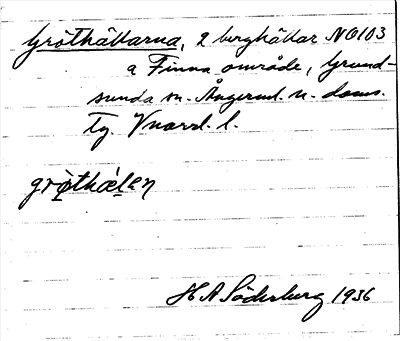 Gröthällarna, 2 berghällar NO103
a Finna område, Grund-
sunda sn. Ångerml. n. doms.
Tg. Vnorrl. l.
gröthǽlen
H A Söderberg 1936